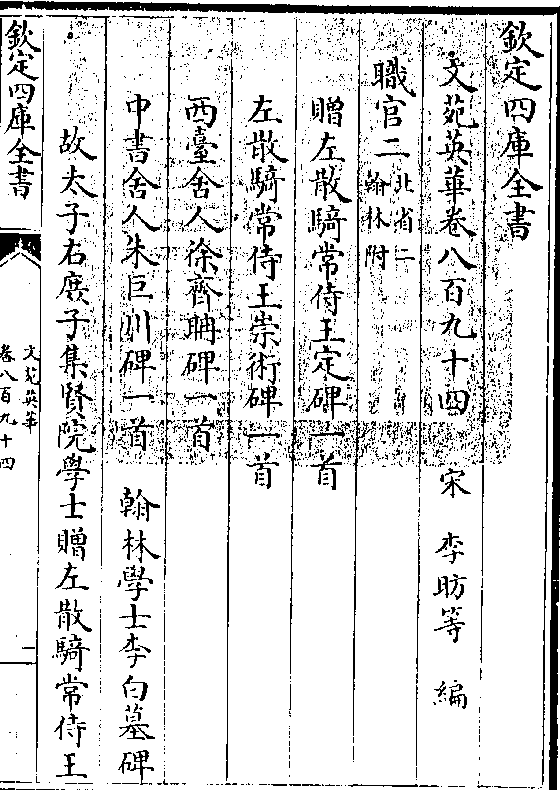 欽定四庫全書
文苑英華卷八百九十四　宋　李昉等　編
職官二北省二翰林附
贈左散騎常侍王定碑一首
左散騎常侍王崇術碑一首
西臺舍人徐齊聃碑一首
中書舍人朱巨川碑一首　翰林學士李白墓碑
故太子右庶子集賢院學士贈左散騎常侍王
欽定四庫全書
文苑英華
卷八百九十四
一